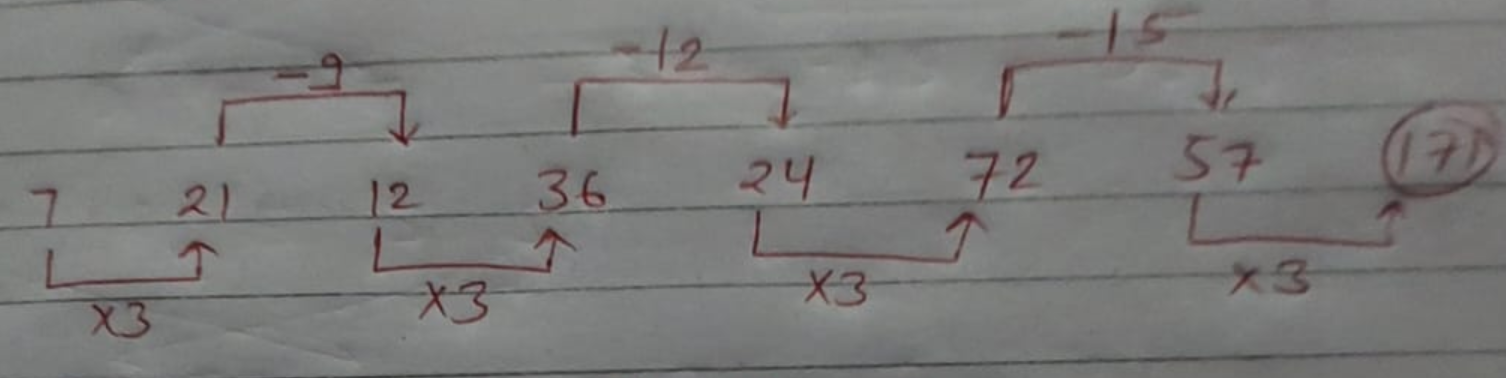 -9 -12 -15
7 21 12 36 24 72 57 171
×3 ×3 ×3 ×3